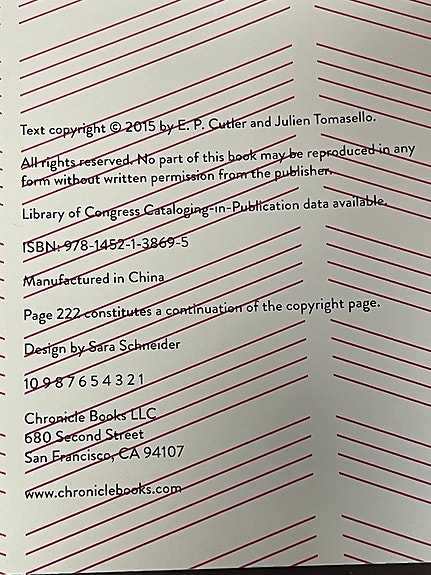 Text copyright © 2015 by E. P. Cutler and Julien Tomasello.
All rights reserved. No part of this book may be reproduced in any
form without written permission from the publisher.
Library of Congress Cataloging-in-Publication data available.
ISBN: 978-1452-1-3869-5
Manufactured in China
Page 222 constitutes a continuation of the copyright page.
Design by Sara Schneider
10 9 8 7 6 5 4 3 2 1
Chronicle Books LLC
680 Second Street
San Francisco, CA 94107
www.chroniclebooks.com